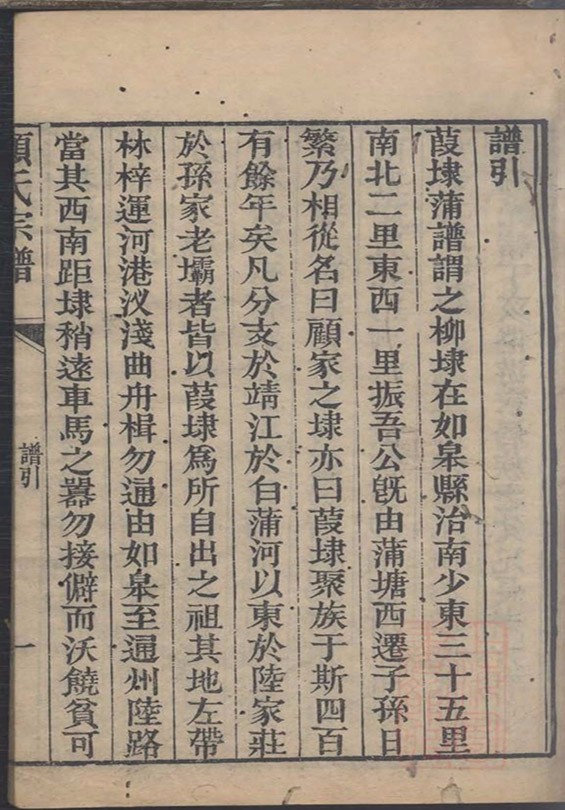 譜引
葭埭蒲譜謂之柳埭在如臯縣治南少東三十五里
南北二里東西一里振吾公旣由蒲塘西遷子孫日
繁乃相從名曰顧家之埭亦曰葭埭聚族于斯四百
有餘年矣凡分支於靖江於白蒲河以東於陸家莊
於孫家老壩者皆以葭埭爲所自出之祖其地左帶
林梓運河港汊淺曲舟楫勿通由如臯至通州陸路
當其西南距埭稍遠車馬之囂勿接僻而沃饒貧可
顧氏宗譜
譜引
一